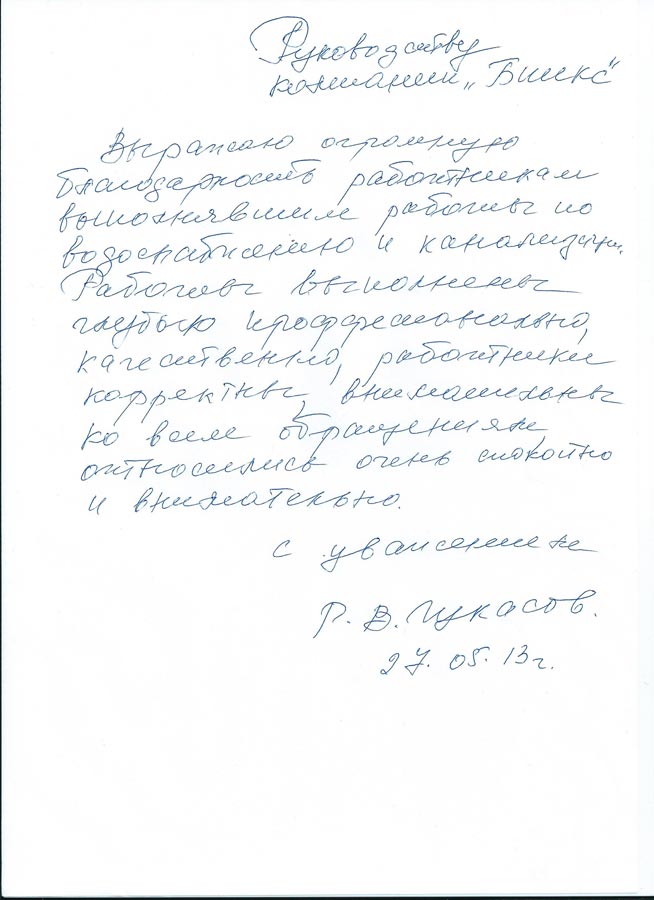 Руководству
компании „Бикс"
Выражаю огромную
благодарность работникам
выполнявшим работы по
водоснабжению и канализации.
Работы выполнены
профессионально,
качественно, работники
корректны, внимательны
ко всем обращениям,
относились очень спокойно
и внимательно.
с уважением
Р. В.
27. 05. 13г.